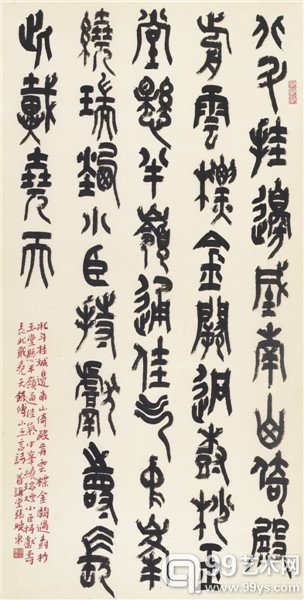 北斗挂邊城南山倚殿
前雲標金闕迥樹杪玉
堂懸半嶺通佳气中峯
繞瑞煙小臣持獻壽長
此戴堯天
北斗挂城邊南山倚殿前雲標金闕迥树杪
玉堂懸半嶺通佳氣中峯繞瑞煙小臣持獻壽
長此戴堯天錄傅山五言詩一首
99艺术网
www.99ys.com